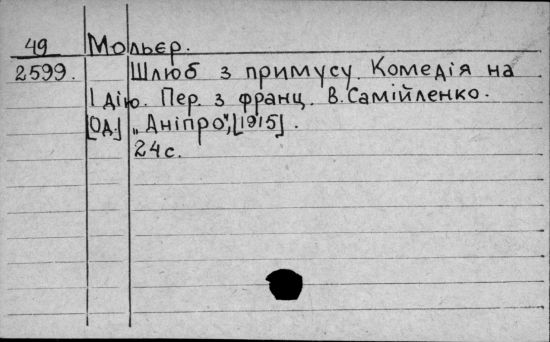 49 Мольєр.
2599. Шлюб з примусу. Комедія на
1 дію. Пер. з франц. В. Самійленко.
[Од.] „Дніпро", [1915].
24 с.